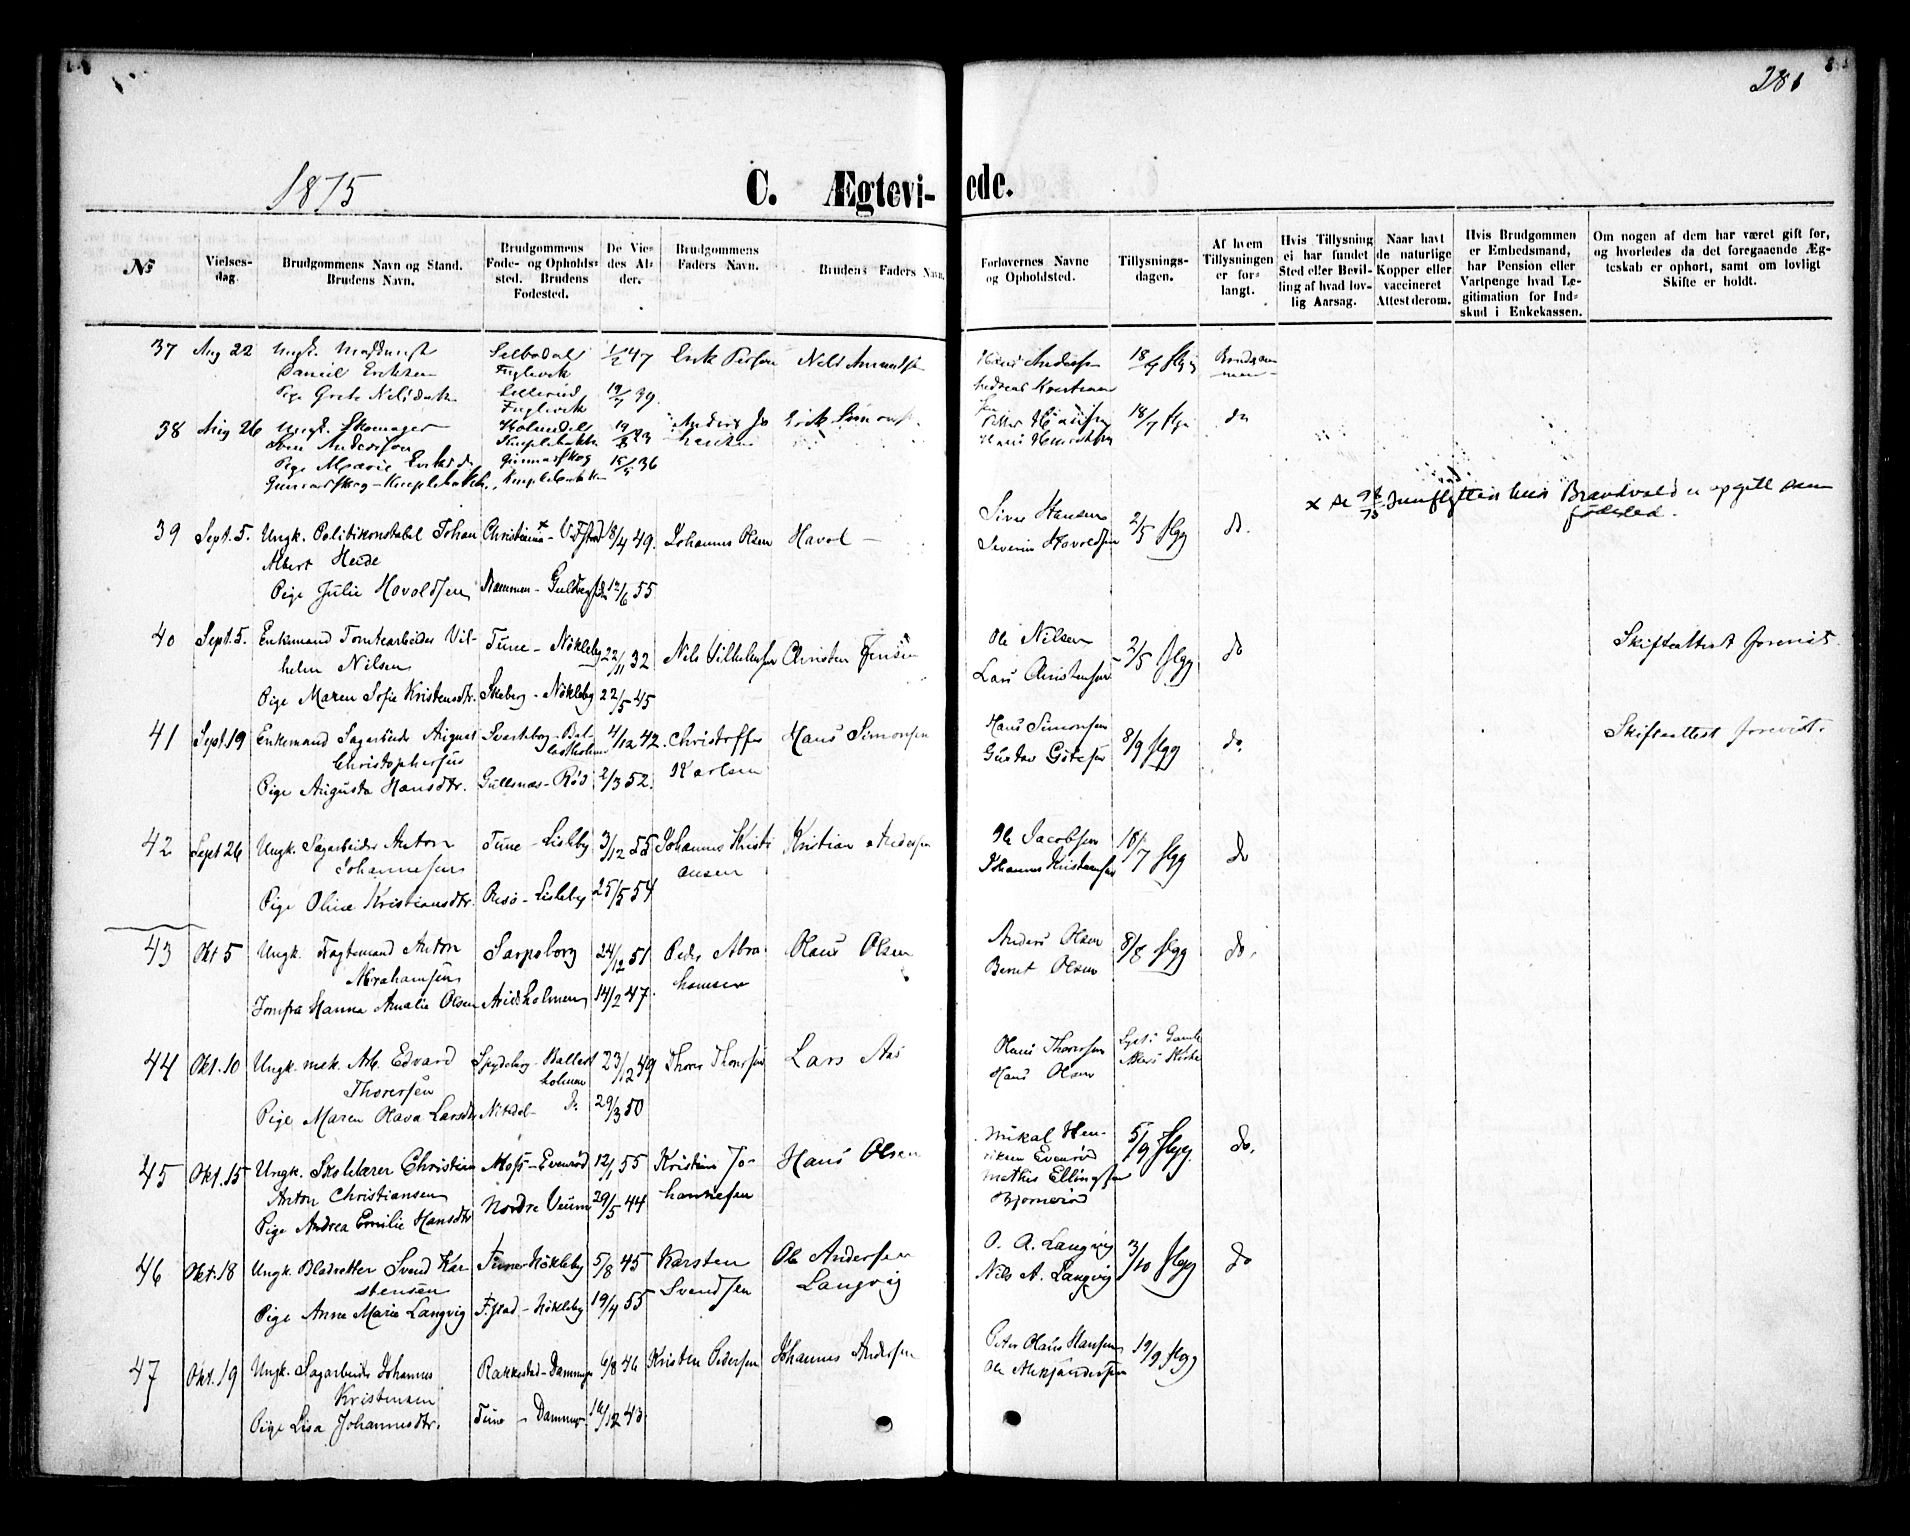 281
1875
C. Ægtevi-
ede.
No
Vielses-
dag.
Brudgommens Navn og Stand.
Brudens Navn.
Brudgommens
Føde- og Opholds-
sted. Brudens
Fødested.
De Vie-
des Al-
der.
Brudgommens
Faders Navn.
Brudens Faders Navn.
Forlovernes Navne
og Opholdsted.
Tillysnings-
dagen.
Af hvem
Tillysningen
er for-
langt.
Hvis Tillysning
ei har fundet
Sted eller Bevil-
ling af hvad lov-
lig Aarsag.
Naar havt
de naturlige
Kopper eller
vaccineret
Attest derom.
Hvis Brudgommen
er Embedsmand,
har Pension eller
Vartpenge hvad Le-
gitimation for Ind-
skud i Enkekassen.
Om nogen af dem har været gift før,
og hvorledes da det foregaaende Æg-
teskab er ophørt, samt om lovligt
Skifte er holdt.
37 Aug 22 Ungk.
Daniel Eriksen
Pige Grete Nilsdatr
Fuglevik
Fuglevik
1/2 47
19/7 39
Erik Nils
Hans Anders
18/7 flgg
38 Aug 26 Ungk. Skomager
Sven Anderson
Pige Marie
Gunnarskog
15/5 36
Anders Jo
Erik Simons
18/7 flgg
do
39 Sept. 5. Ungk. Politikonstabel Johan
Albert Heide
Pige Julie Havoldsen
Christiania - F.stad
18/4 49.
12/6 55
Johannes Olsen
Havol -
Siver Hansen
Severin Havoldsen
2/5 flgg
do.
Brandvold er opgitt som
fødested.
40 Sept. 5. Enkemand Tomtearbeider Vil-
helm Nilsen
Pige Maren Sofie Kristensdtr.
Tune - Nökleby
Skeberg - Nökleby
22/11 32
22/5 45
Nils Vilhelmsen
Christen Jensen
Ole Nilsen
Lars Christensen
2/5 flgg
do
Skifteattest forevist.
41 Sept. 19 Enkemand Sagarbeider August
Christophersen
Pige Augusta Hansdtr.
Svarteborg - Bal-
lastholmen
Gullesnæs - Röd
4/12 42.
2/3 52.
Christoffer
Karlsen
Hans Simonsen
Hans Simonsen
Gustav Götesen
8/9 flgg
do.
Skifteattest forevist.
42 Sept 26 Ungk. Sagarbeider Anton
Johannesen
Pige Oline Kristiansdtr.
Tune - Lisleby
Resö - Lisleby
3/12 55
25/5 54
Johannes Kristi
ansen
Kristian Andersen
Ole Jacobsen
Johannes Kristiansen
18/7 flgg
do
43 Okt 5 Ungk. Fragtemand Anton
Abrahamsen
Jomfru Hanna Amalie Olsen
Sarpsborg
Arisholmen
24/12 51
14/2 47.
Peder Abra-
hamsen
Olaus Olsen
Anders Olsen
Bernt Olsen
8/8 flgg
do.
44 Okt. 10 Ungk. mek. Arb. Edvard
Thoresen
Pige Maren Olava Larsdtr
Spydeberg - Ballast
holmen
Nitedal - Do.
23/12 49
29/3 50
Thorer Thoresen
Lars Aas
Olaus Thoresen
Hans Olsen
Lyst i Gamle
Akers Kirke
45 Okt. 15 Ungk. Skolelærer Christian
Anton Christiansen
Pige Andrea Emilie Hansdtr
Moss - Evenröd
Nordre Veum
12/1 55
29/5 44
Kristian Jo-
hannesen
Hans Olsen
Mikal Hen-
riksen Evenröd
Mathis Ellingsen
Bjørneröd
5/9 flgg.
do.
46 Okt. 18 Ungk. Bladsætter Svend Kar
stensen
Pige Anne Marie Langvig
Tune - Nökleby
F.stad - Nökleby
5/8 45
19/4 55
Karsten
Svendsen
Ole Andersen
Langvig
O. A. Langvig
Nils A. Langvig
3/10 flgg
do
47 Okt. 19 Ungk. Sagarbeider Johannes
Kristensen
Pige Lisa Johannesdtr.
Rakkestad - Dammyr
Tune - Dammyr
6/8 46
16/12 43.
Kristen Pedersen
Johannes Andersen
Peter Olaus Hansen
Ole Aleksandersen
19/9 flgg